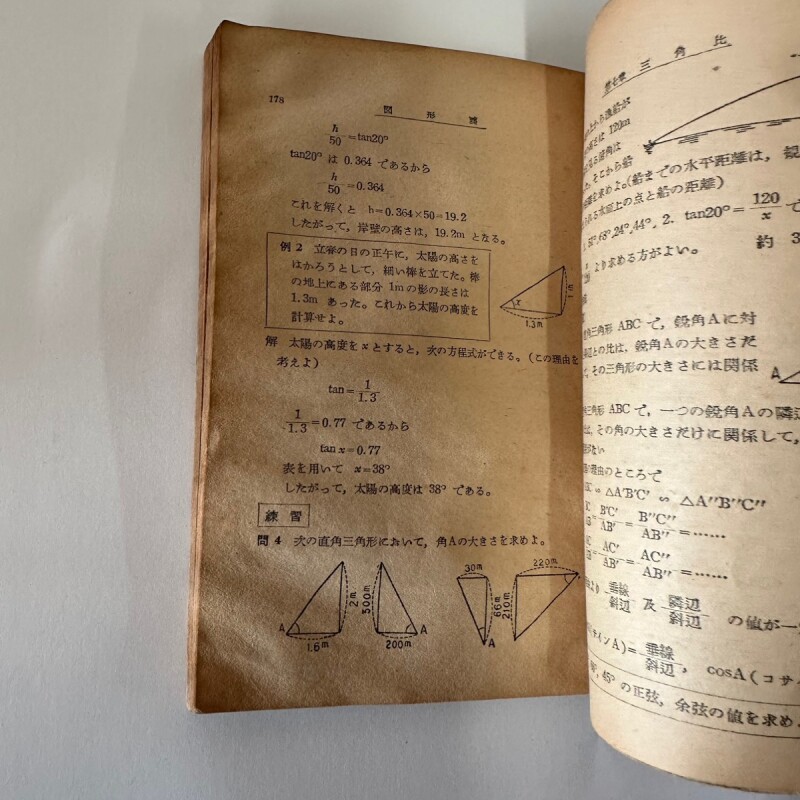 178
図形篇
h/50=tan20°
tan20° は 0.364 であるから
h/50=0.364
これを解くと h=0.364×50=19.2
したがって，岸壁の高さは，19.2m となる。
例2 立春の日の正午に，太陽の高さを
はかろうとして，細い棒を立てた。棒
の地上にある部分 1mの影の長さは
1.3m あった。これから太陽の高度を
計算せよ。
x
1m
1.3m
解 太陽の高度をxとすると，次の方程式ができる。(この理由を
考えよ)
tan=1/1.3
1/1.3=0.77 であるから
tan x=0.77
表を用いて x=38°
したがって，太陽の高度は 38° である。
練習
問4 次の直角三角形において，角Aの大きさを求めよ。
A
1.6m
2m
500m
A
200m
30m
66m
A
220m
210m
A
三角比
高さは 120m
そこから船
を求めよ。(船までの水平距離は，観
水面上の点と船の距離)
68°,24°,44°, 2. tan20°=120/x で
より求める方がよい。 約 3
三角形 ABC で，鋭角Aに対
辺との比は，鋭角Aの大きさだ
その三角形の大きさには関係
A
三角形 ABC で，一つの鋭角Aの隣辺
は，その角の大きさだけに関係して，
理由のところで
∽ △A'B'C' ∽ △A''B''C''
B'C'/AB'=B''C''/AB''=……
AC'/AB'=AC''/AB''=……
より 垂線/斜辺 及 隣辺/斜辺 の値が一
サインA)=垂線/斜辺, cosA(コサ
45° の正弦，余弦の値を求め